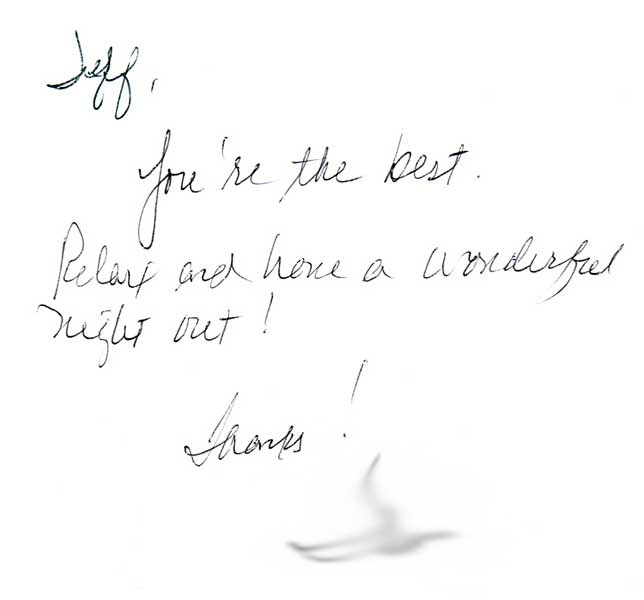 Jeff,
You're the best.
Relax and have a wonderful
night out!
Thanks!